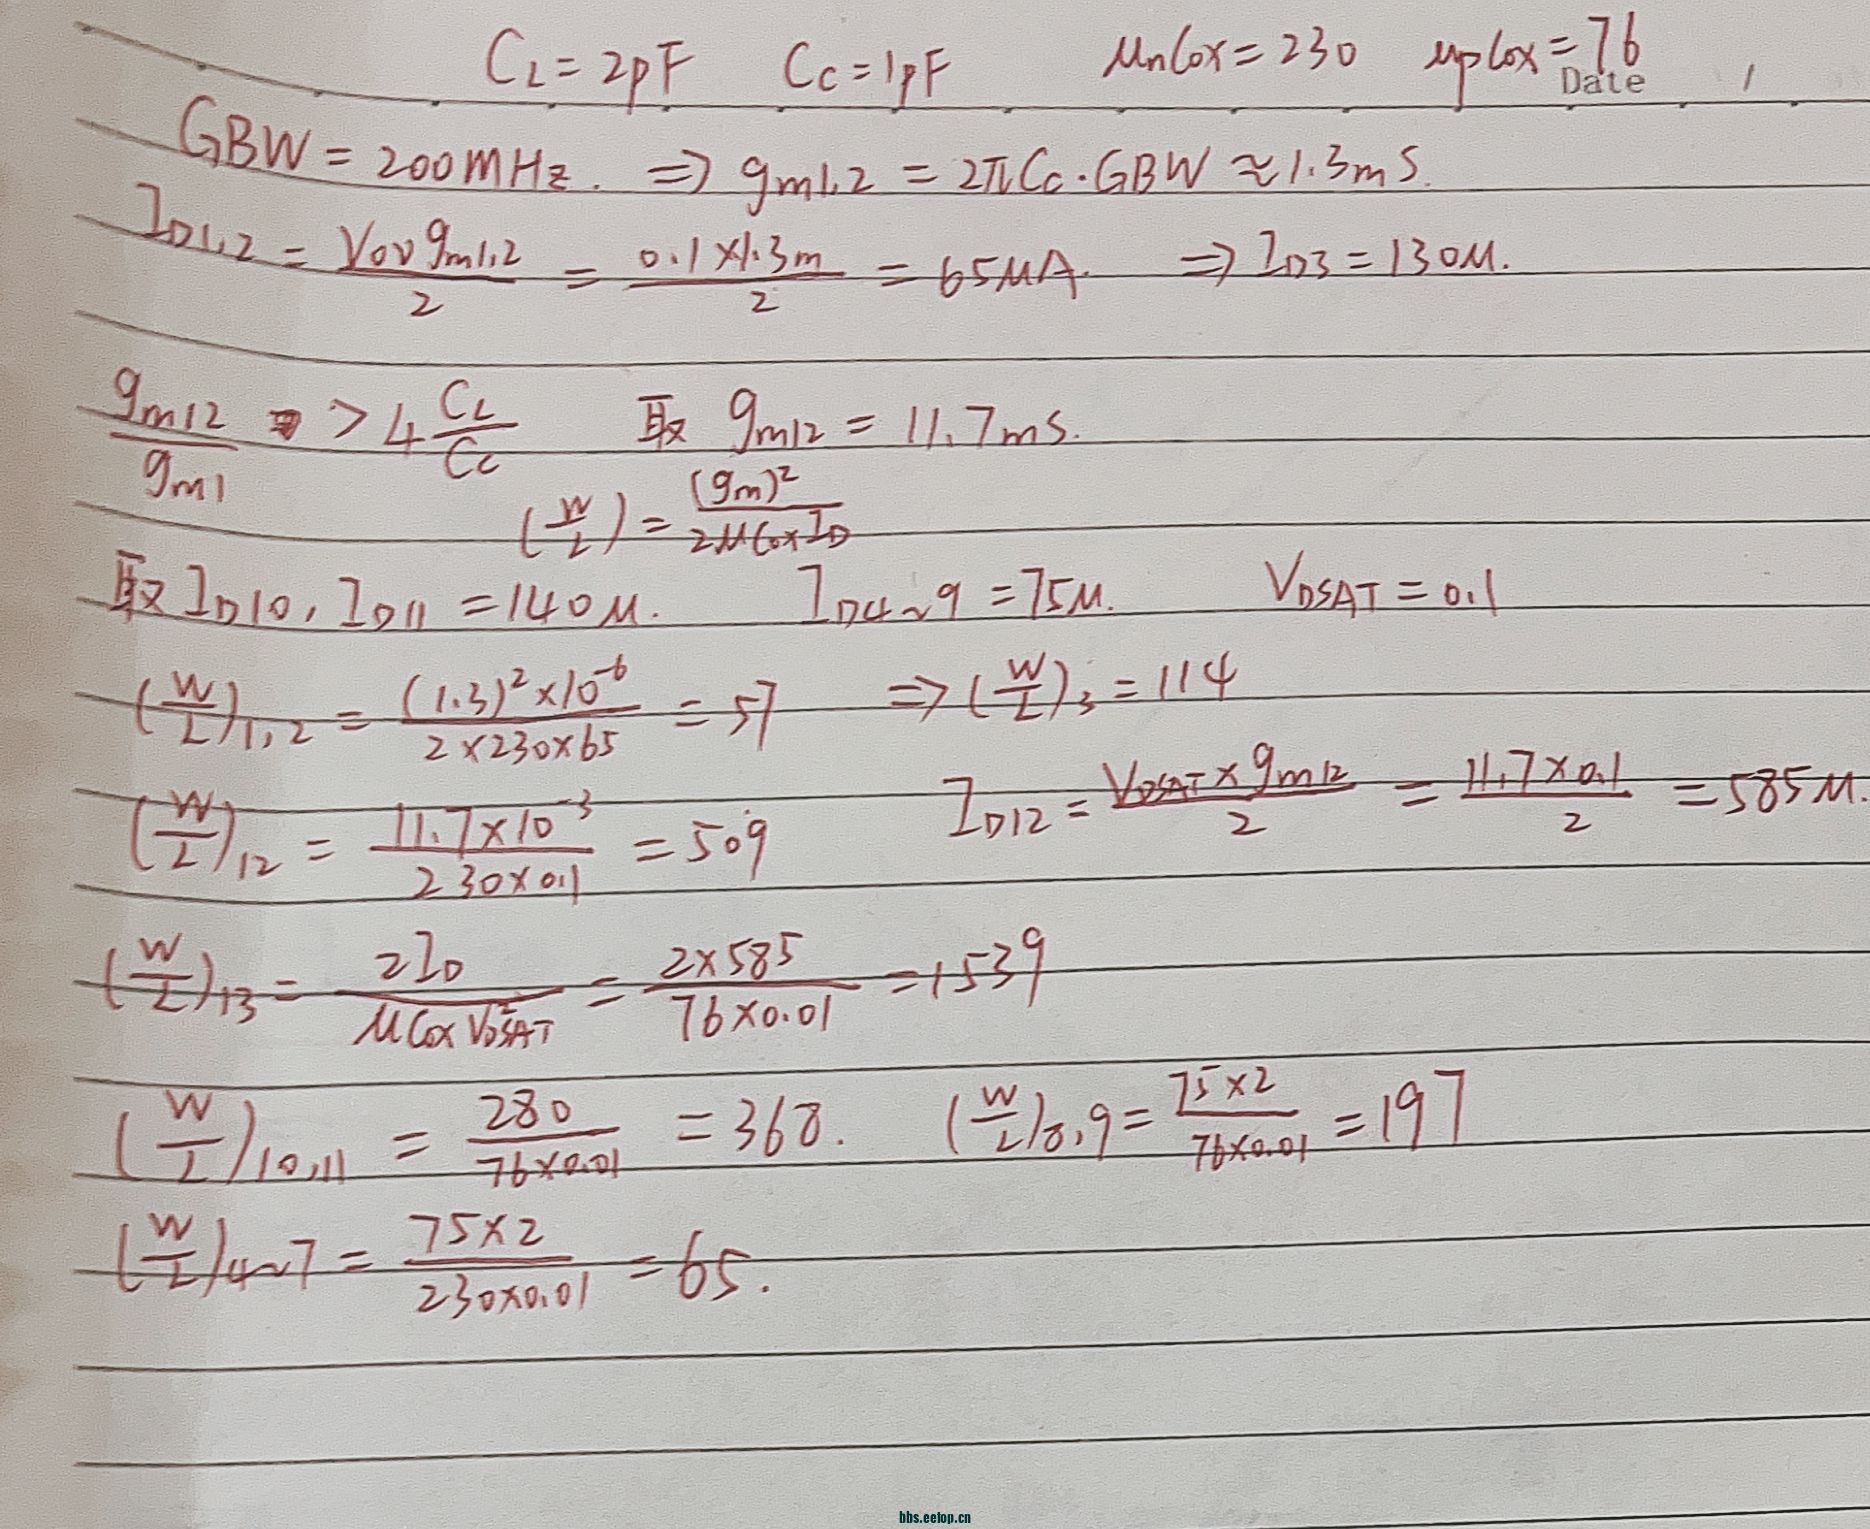 C_L = 2pF C_C = 1pF μnCox = 230 μpCox = 76
Date
GBW = 200MHz. ⇒ g_m1,2 = 2πCc·GBW ≈ 1.3mS.
I_D1,2 = V_OV g_m1,2 / 2 = 0.1×1.3m / 2 = 65μA. ⇒ I_D3 = 130μ.
g_m12 / g_m1 > 4 C_L / C_C 取 g_m12 = 11.7mS.
(W/L) = (gm)² / 2μCoxI_D
取 I_D10, I_D11 = 140μ. I_D4~9 = 75μ. V_DSAT = 0.1
(W/L)_1,2 = (1.3)²×10⁻⁶ / 2×230×65 = 57 ⇒ (W/L)_3 = 114
(W/L)_12 = 11.7×10⁻³ / 230×0.1 = 509 I_D12 = V_DSAT×g_m12 / 2 = 11.7×0.1 / 2 = 585μ.
(W/L)_13 = 2I_D / μCoxV²_DSAT = 2×585 / 76×0.01 = 1539
(W/L)_10,11 = 280 / 76×0.01 = 368. (W/L)_8,9 = 75×2 / 76×0.01 = 197
(W/L)_4~7 = 75×2 / 230×0.01 = 65.
bbs.eetop.cn